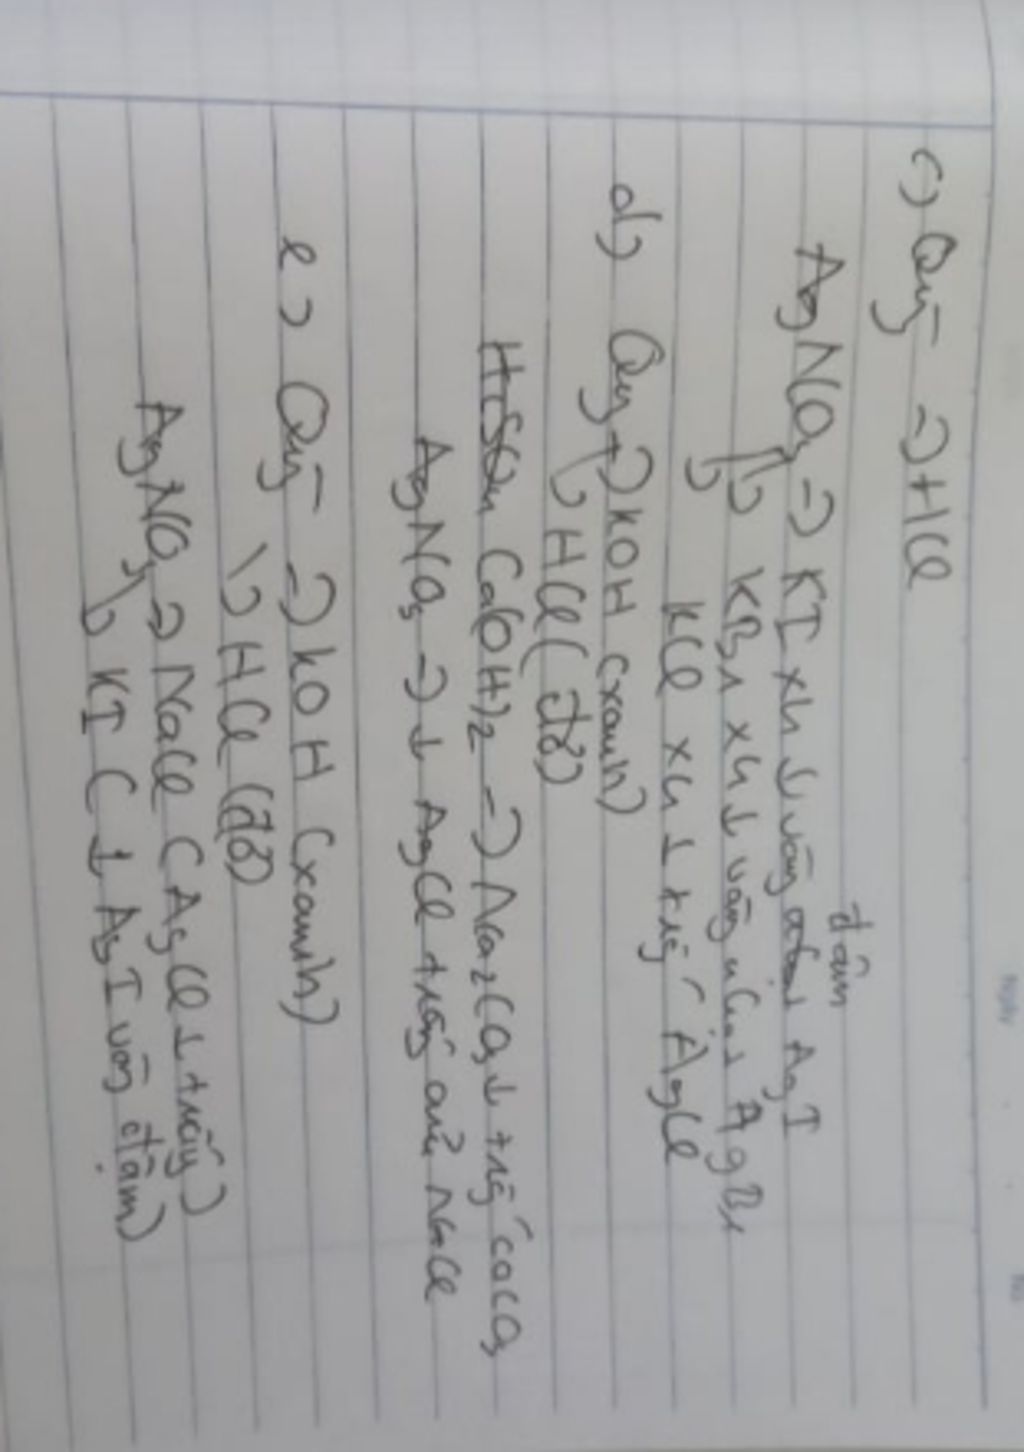 c) Quỳ => HCl
đậm
AgNO3 => KI xh ↓ vàng AgI
KBr xh ↓ vàng nhạt AgBr
KCl xh ↓ trắng AgCl
d) Quỳ => KOH (xanh)
HCl (đỏ)
Ca(OH)2 => Na2CO3 ↓ trắng CaCO3
AgNO3 => ↓ AgCl trắng của NaCl
e) Quỳ => KOH (xanh)
HCl (đỏ)
AgNO3 => NaCl (AgCl ↓ trắng)
KI (↓ AgI vàng đậm)